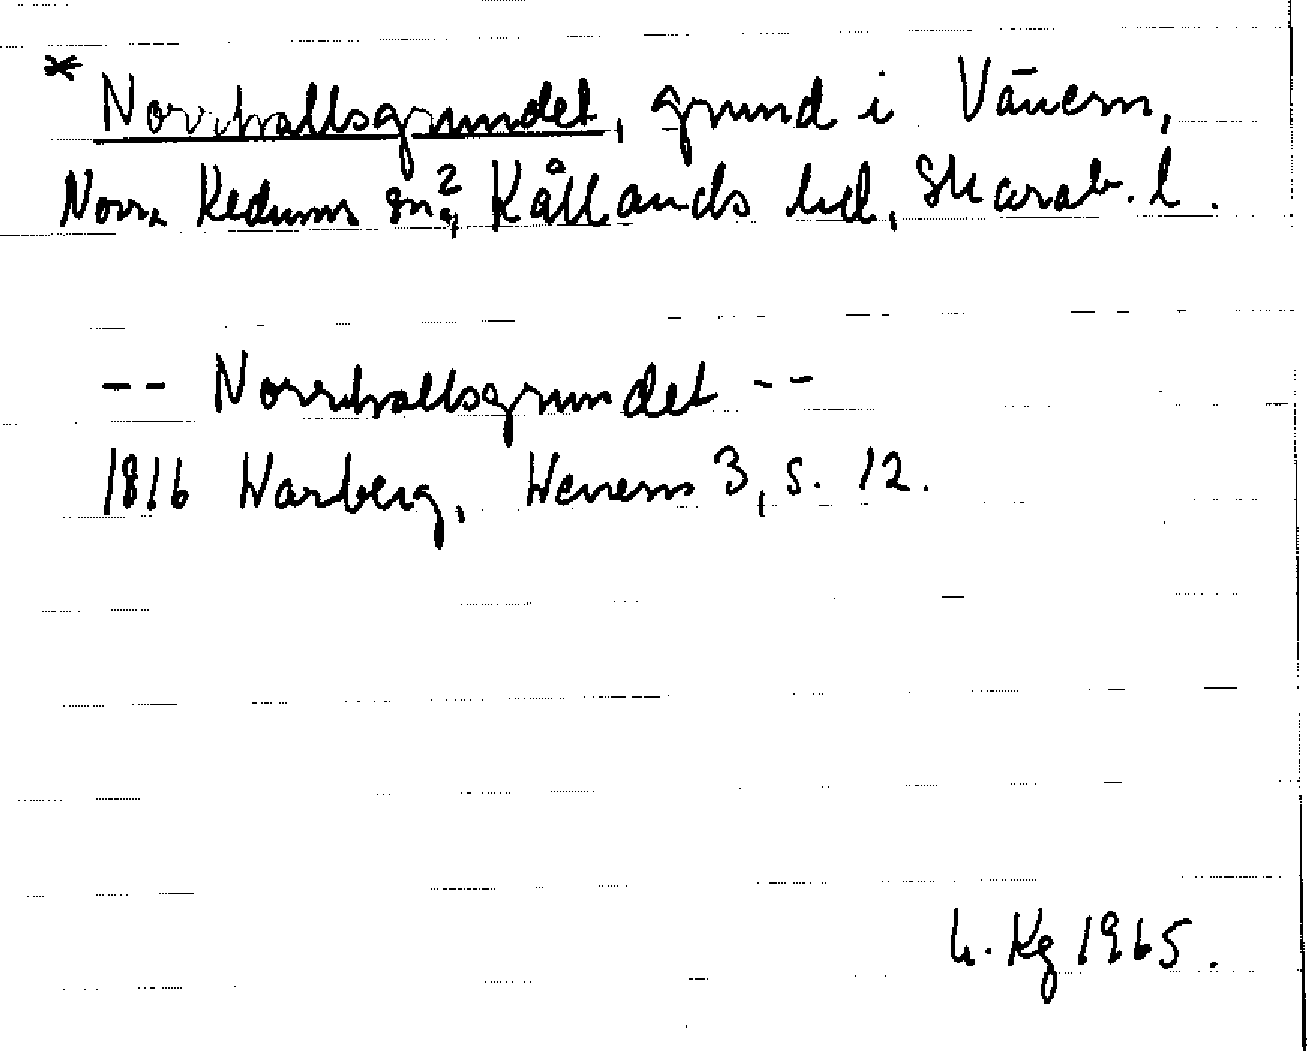 * Norrhallsgrundet, grund i Vänern,
Norra Kedums sn?, Kållands hd, Skarab. l.
-- Norrhallsgrundet --
1816 Warberg, Wenern 3, s. 12.
Kg 1965.